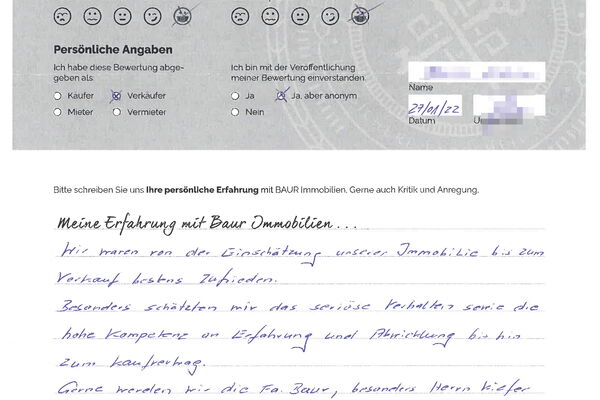 Persönliche Angaben
Ich habe diese Bewertung abge-
geben als:
Käufer Verkäufer
Mieter Vermieter
Ich bin mit der Veröffentlichung
meiner Bewertung einverstanden.
Ja Ja, aber anonym
Nein
Name
29/01/22
Datum U
Bitte schreiben Sie uns Ihre persönliche Erfahrung mit BAUR Immobilien. Gerne auch Kritik und Anregung.
Meine Erfahrung mit Baur Immobilien...
Wir waren von der Einschätzung unserer Immobilie bis zum
Verkauf bestens zufrieden.
Besonders schätzten wir das seriöse Verhalten sowie die
hohe Kompetenz an Erfahrung und Abwicklung bis hin
zum Kaufvertrag.
Gerne werden wir die Fa. Baur, besonders Herrn Kiefer